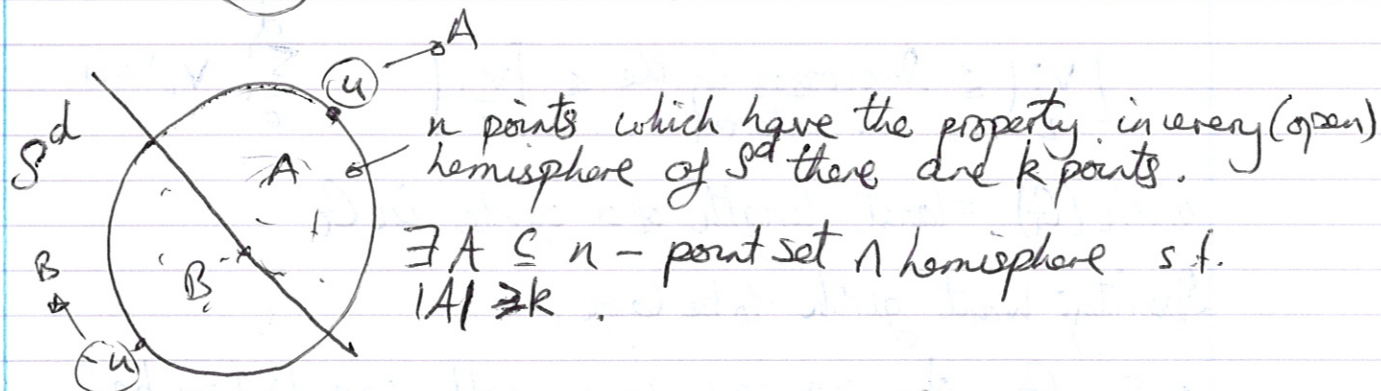 A
u
S^d
n points which have the property in every (open)
A
hemisphere of S^d there are k points.
B
B
∃ A ⊆ n - point set ∩ hemisphere s.t.
|A| ≥ k .
-u